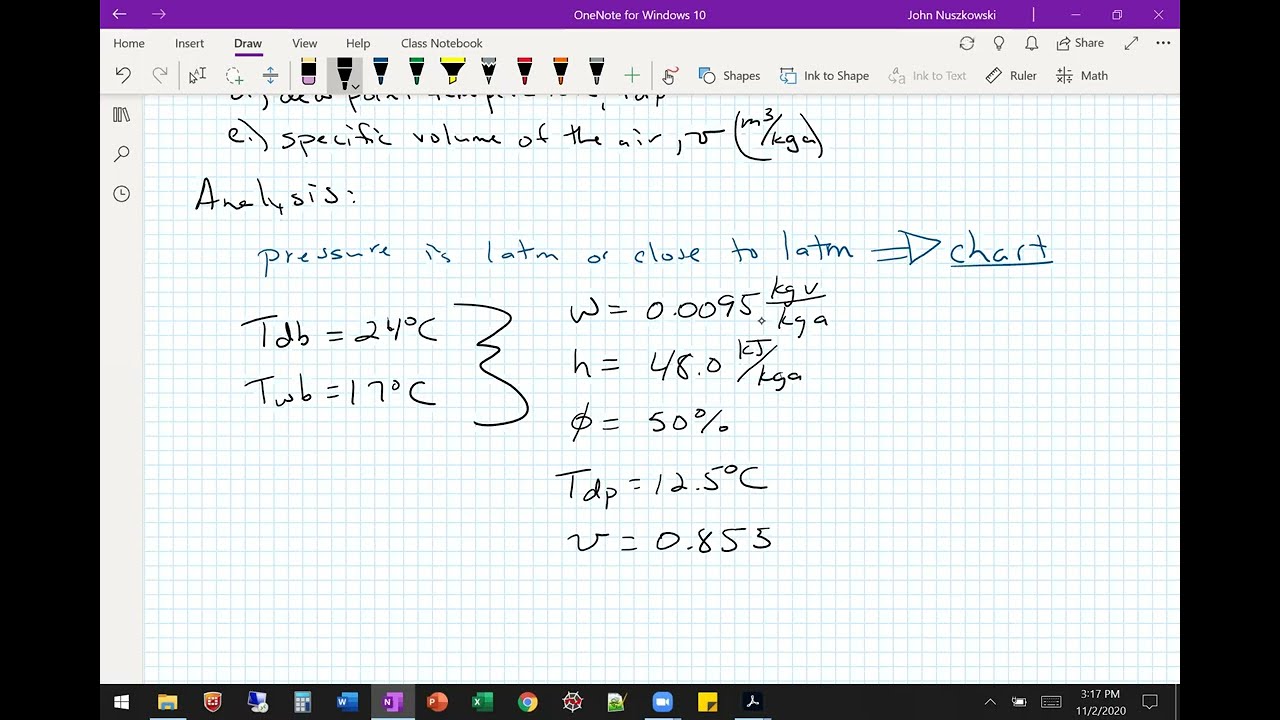 OneNote for Windows 10
John Nuszkowski
Home Insert Draw View Help Class Notebook
Share
Shapes Ink to Shape Ink to Text Ruler Math
d.) dew point temperature, Tdp
e.) specific volume of the air, v (m³/kga)
Analysis:
pressure is 1atm or close to 1atm ⇒ chart
Tdb = 24°C
Twb = 17°C
w = 0.0095 kgv/kga
h = 48.0 kJ/kga
ϕ = 50%
Tdp = 12.5°C
v = 0.855
3:17 PM
11/2/2020